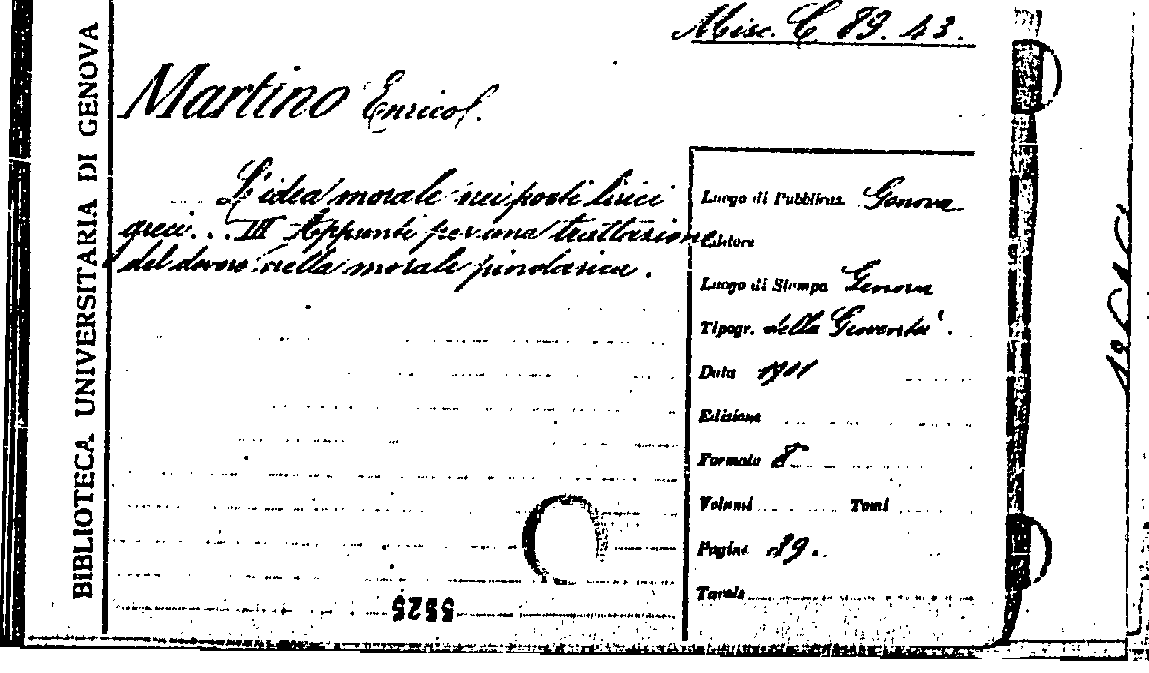 Misc. C 89. 43.
BIBLIOTECA UNIVERSITARIA DI GENOVA
Martino Enrico
L'idea morale nei poeti lirici
greci... III Appunti per una trattazione
del dovere nella morale pindarica.
Luogo di Pubblicaz. Genova
Editore
Luogo di Stampa Genova
Tipogr. della Gioventù.
Data 1901
Edizione
Formato 8
Volumi Tomi
Pagine 19.
Tavole
5525